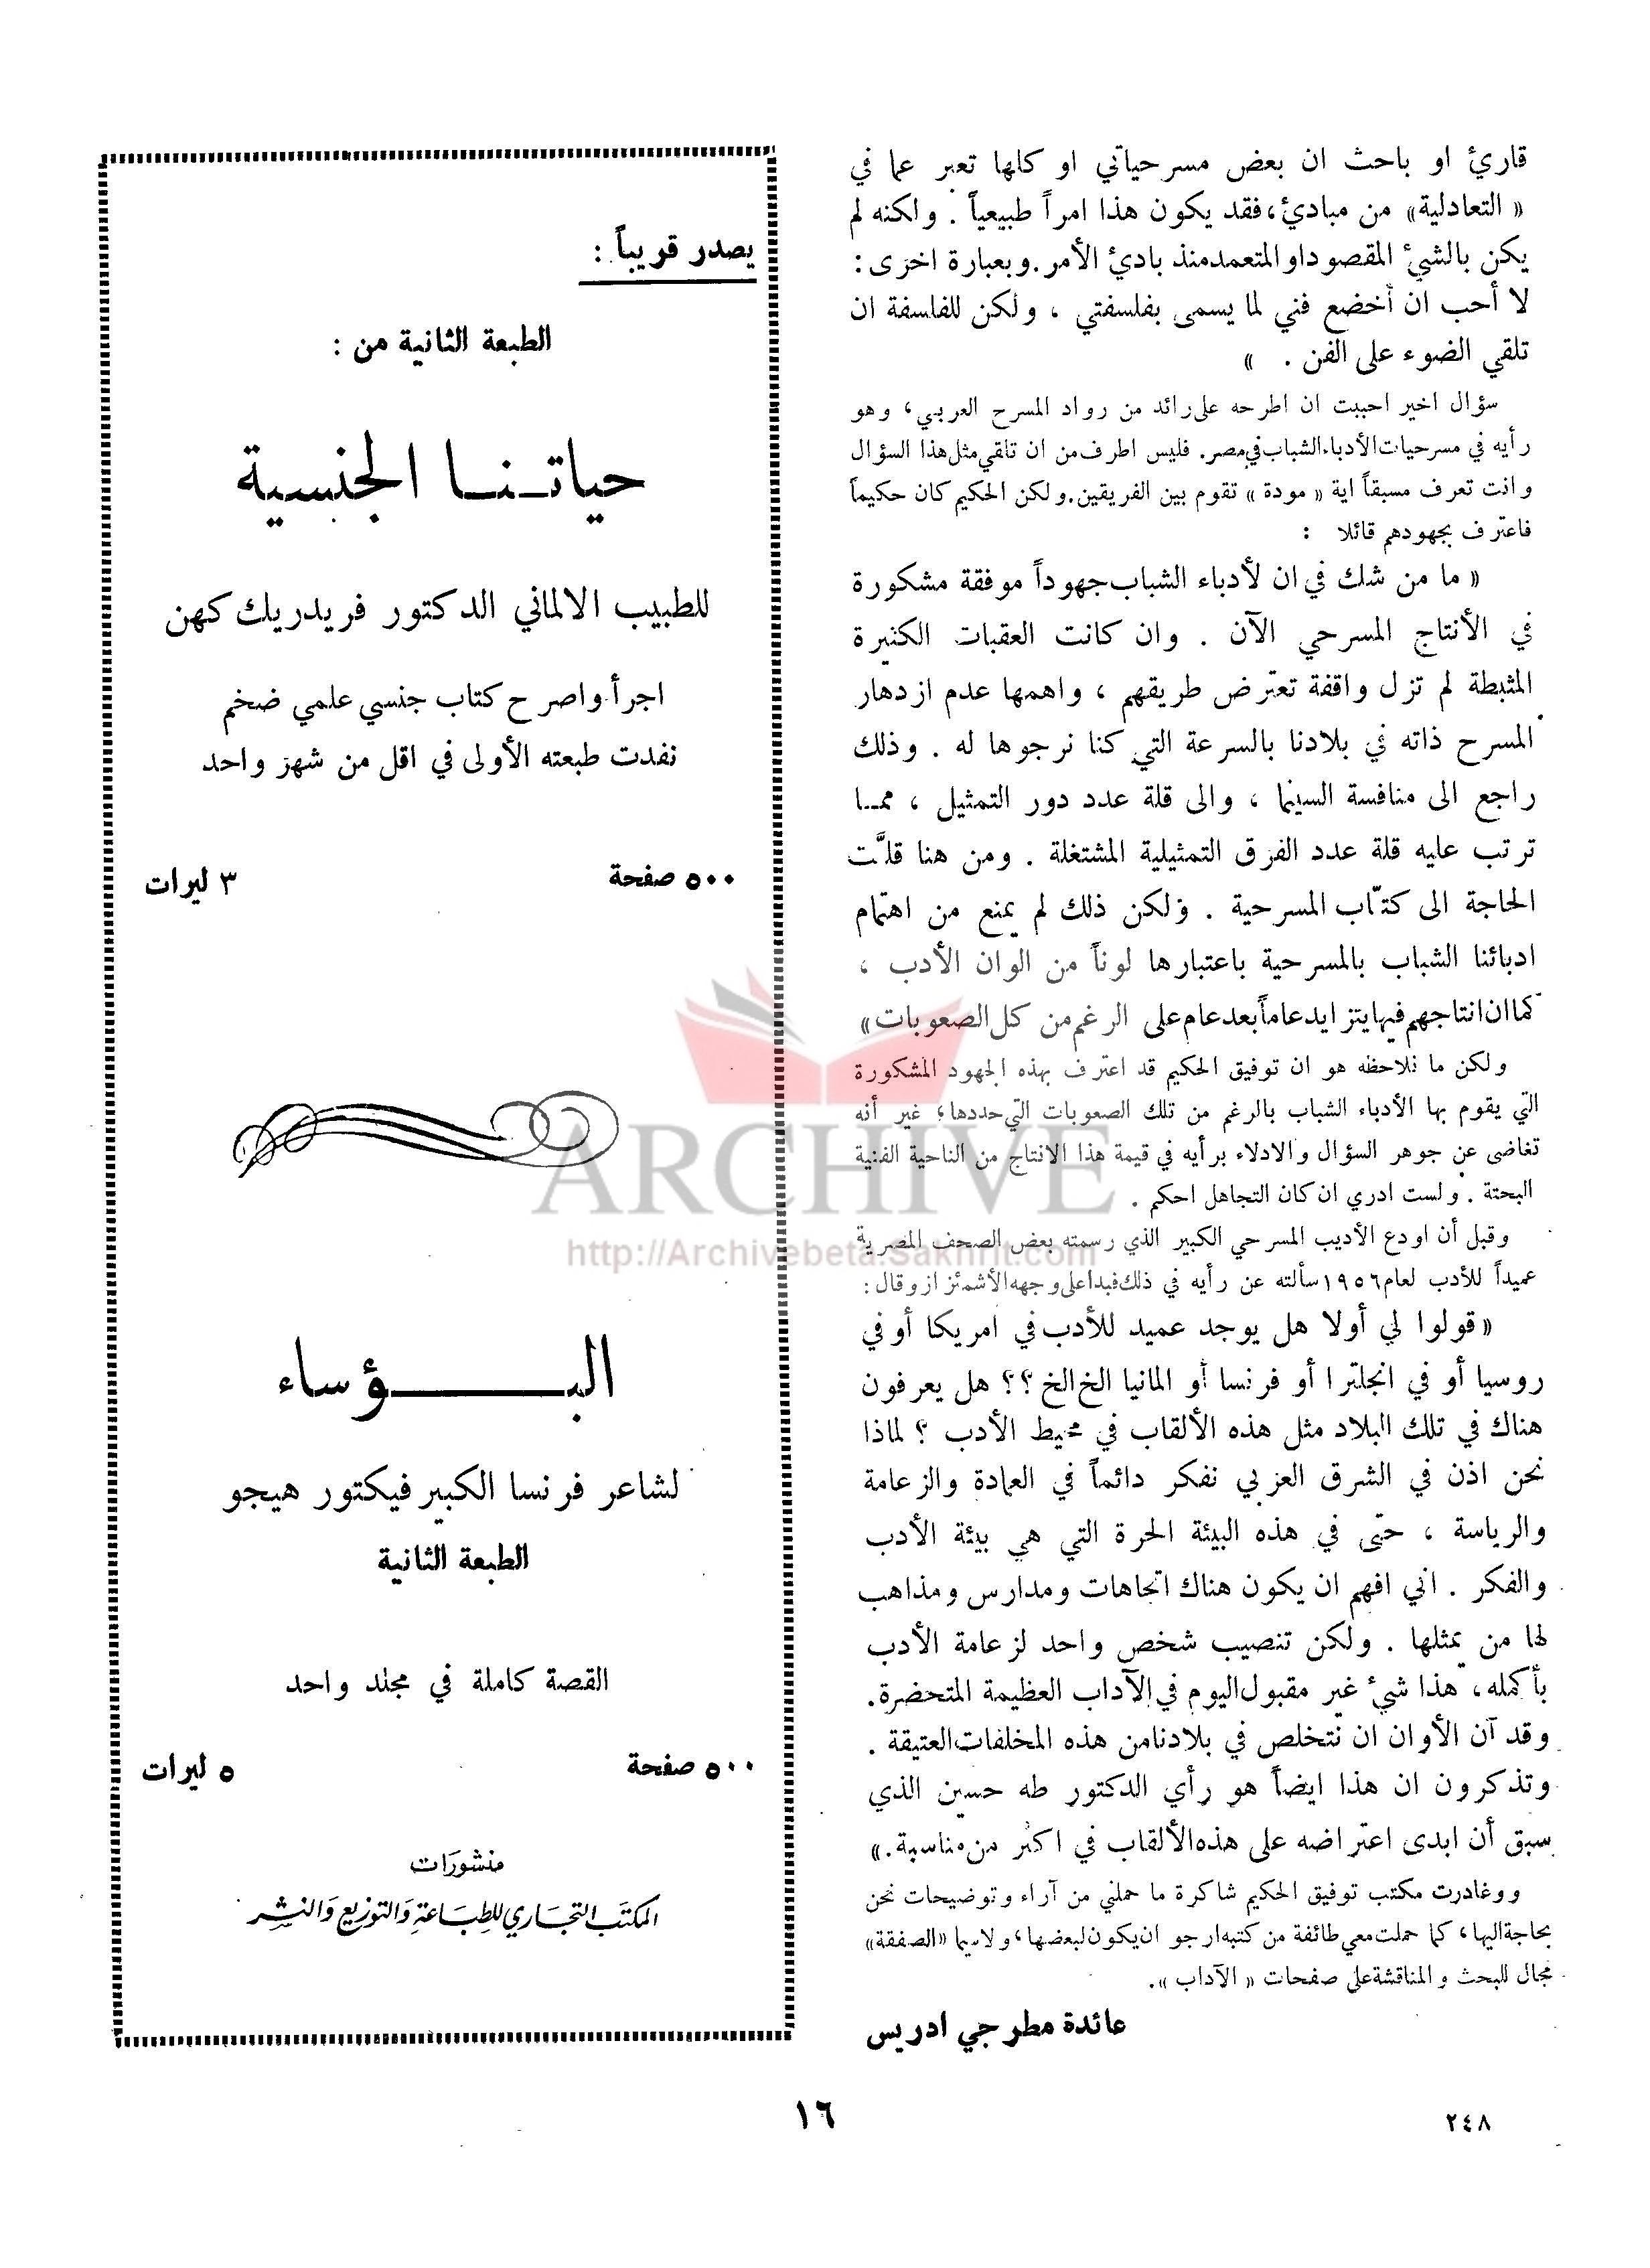 قارئ او باحث ان بعض مسرحياتي او كلها تعبر عما في
« التعادلية » من مبادئ، فقد يكون هذا امراً طبيعياً . ولكنه لم
يكن بالشيء المقصود او المتعمد منذ بادئ الأمر. وبعبارة اخرى :
لا أحب ان أخضع فني لما يسمى بفلسفتي ، ولكن للفلسفة ان
تلقي الضوء على الفن . »
سؤال اخير احببت ان اطرحه على رائد من رواد المسرح العربي، وهو
رأيه في مسرحيات الأدباء الشباب في مصر. فليس اطرف من ان تلقي مثل هذا السؤال
وانت تعرف مسبقاً اية « مودة » تقوم بين الفريقين. ولكن الحكيم كان حكيماً
فاعترف بجهودهم قائلا :
« ما من شك في ان لأدباء الشباب جهوداً موفقة مشكورة
في الأنتاج المسرحي الآن . وان كانت العقبات الكثيرة
المثبطة لم تزل واقفة تعترض طريقهم ، واهمها عدم ازدهار
المسرح ذاته في بلادنا بالسرعة التي كنا نرجوها له . وذلك
راجع الى منافسة السينما ، والى قلة عدد دور التمثيل ، ممـا
ترتب عليه قلة عدد الفرق التمثيلية المشتغلة . ومن هنا قلَّت
الحاجة الى كتّاب المسرحية . ولكن ذلك لم يمنع من اهتمام
ادبائنا الشباب بالمسرحية باعتبارها لوناً من الوان الأدب ،
كما ان انتاجهم فيها يتزايد عاماً بعد عام على الرغم من كل الصعوبات »
ولكن ما نلاحظه هو ان توفيق الحكيم قد اعترف بهذه الجهود المشكورة
التي يقوم بها الأدباء الشباب بالرغم من تلك الصعوبات التي حددها، غير أنه
تغاضى عن جوهر السؤال والادلاء برأيه في قيمة هذا الانتاج من الناحية الفنية
البحتة . ولست ادري ان كان التجاهل احكم .
وقبل أن اودع الأديب المسرحي الكبير الذي رسمته بعض الصحف المصرية
عميداً للأدب لعام ١٩٥٦ سألته عن رأيه في ذلك فبدا على وجهه الأشمئزاز وقال :
« قولوا لي أولا هل يوجد عميد للأدب في امريكا أو في
روسيا أو في انجلترا أو فرنسا أو المانيا الخ الخ ؟؟ هل يعرفون
هناك في تلك البلاد مثل هذه الألقاب في محيط الأدب ؟ لماذا
نحن اذن في الشرق العربي نفكر دائماً في العادة والزعامة
والرياسة ، حتى في هذه البيئة الحرة التي هي بيئة الأدب
والفكر . اني افهم ان يكون هناك اتجاهات ومدارس ومذاهب
لها من يمثلها . ولكن تنصيب شخص واحد لزعامة الأدب
بأكمله، هذا شيء غير مقبول اليوم في الآداب العظيمة المتحضرة.
وقد آن الأوان ان نتخلص في بلادنا من هذه المخلفات العتيقة .
وتذكرون ان هذا ايضاً هو رأي الدكتور طه حسين الذي
سبق أن ابدى اعتراضه على هذه الألقاب في اكثر من مناسبة. »
ووغادرت مكتب توفيق الحكيم شاكرة ما حملني من آراء وتوضيحات نحن
بحاجة اليها، كما حملت معي طائفة من كتبه ارجو ان يكون لبعضها، ولا سيما «الصفقة»
مجال للبحث والمناقشة على صفحات « الآداب ».
عائدة مطرجي ادريس
٢٤٨
يصدر قريباً :
الطبعة الثانية من :
حياتـنـا الجنسية
للطبيب الالماني الدكتور فريدريك كهن
اجرأ واصرح كتاب جنسي علمي ضخم
نفدت طبعته الأولى في اقل من شهر واحد
٥٠٠ صفحة
٣ ليرات
البـــــؤساء
لشاعر فرنسا الكبير فيكتور هيجو
الطبعة الثانية
القصة كاملة في مجلد واحد
٥٠٠ صفحة
٥ ليرات
منشورَات
المكتب التجَاري للطِبَاعَةِ وَالتوزيع وَالنشِر
١٦
ARCHIVE
http://Archivebeta.Sakhrit.com